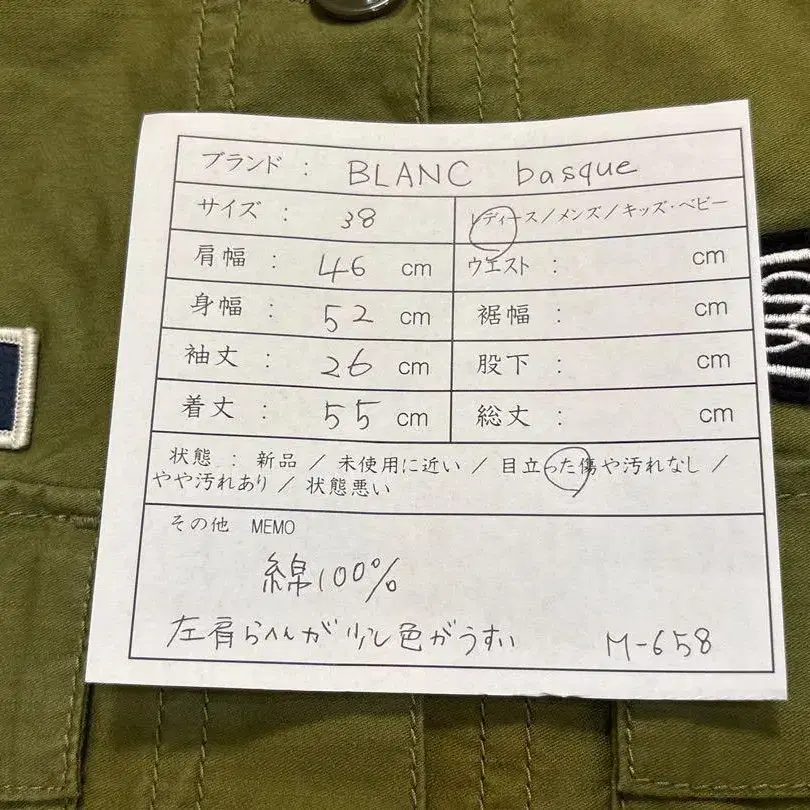 ブランド : BLANC basque
サイズ : 38 レディース/メンズ/キッズ・ベビー
肩幅 : 46 cm ウエスト : cm
身幅 : 52 cm 裾幅 : cm
袖丈 : 26 cm 股下 : cm
着丈 : 55 cm 総丈 : cm
状態 : 新品 / 未使用に近い / 目立った傷や汚れなし /
やや汚れあり / 状態悪い
その他 MEMO
綿100%
左肩らへんが少し色がうすい M-658